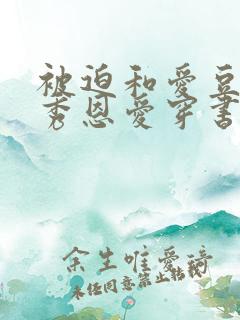 被迫和爱豆
秀恩爱穿书
余生唯爱琦
未经同意禁止转载